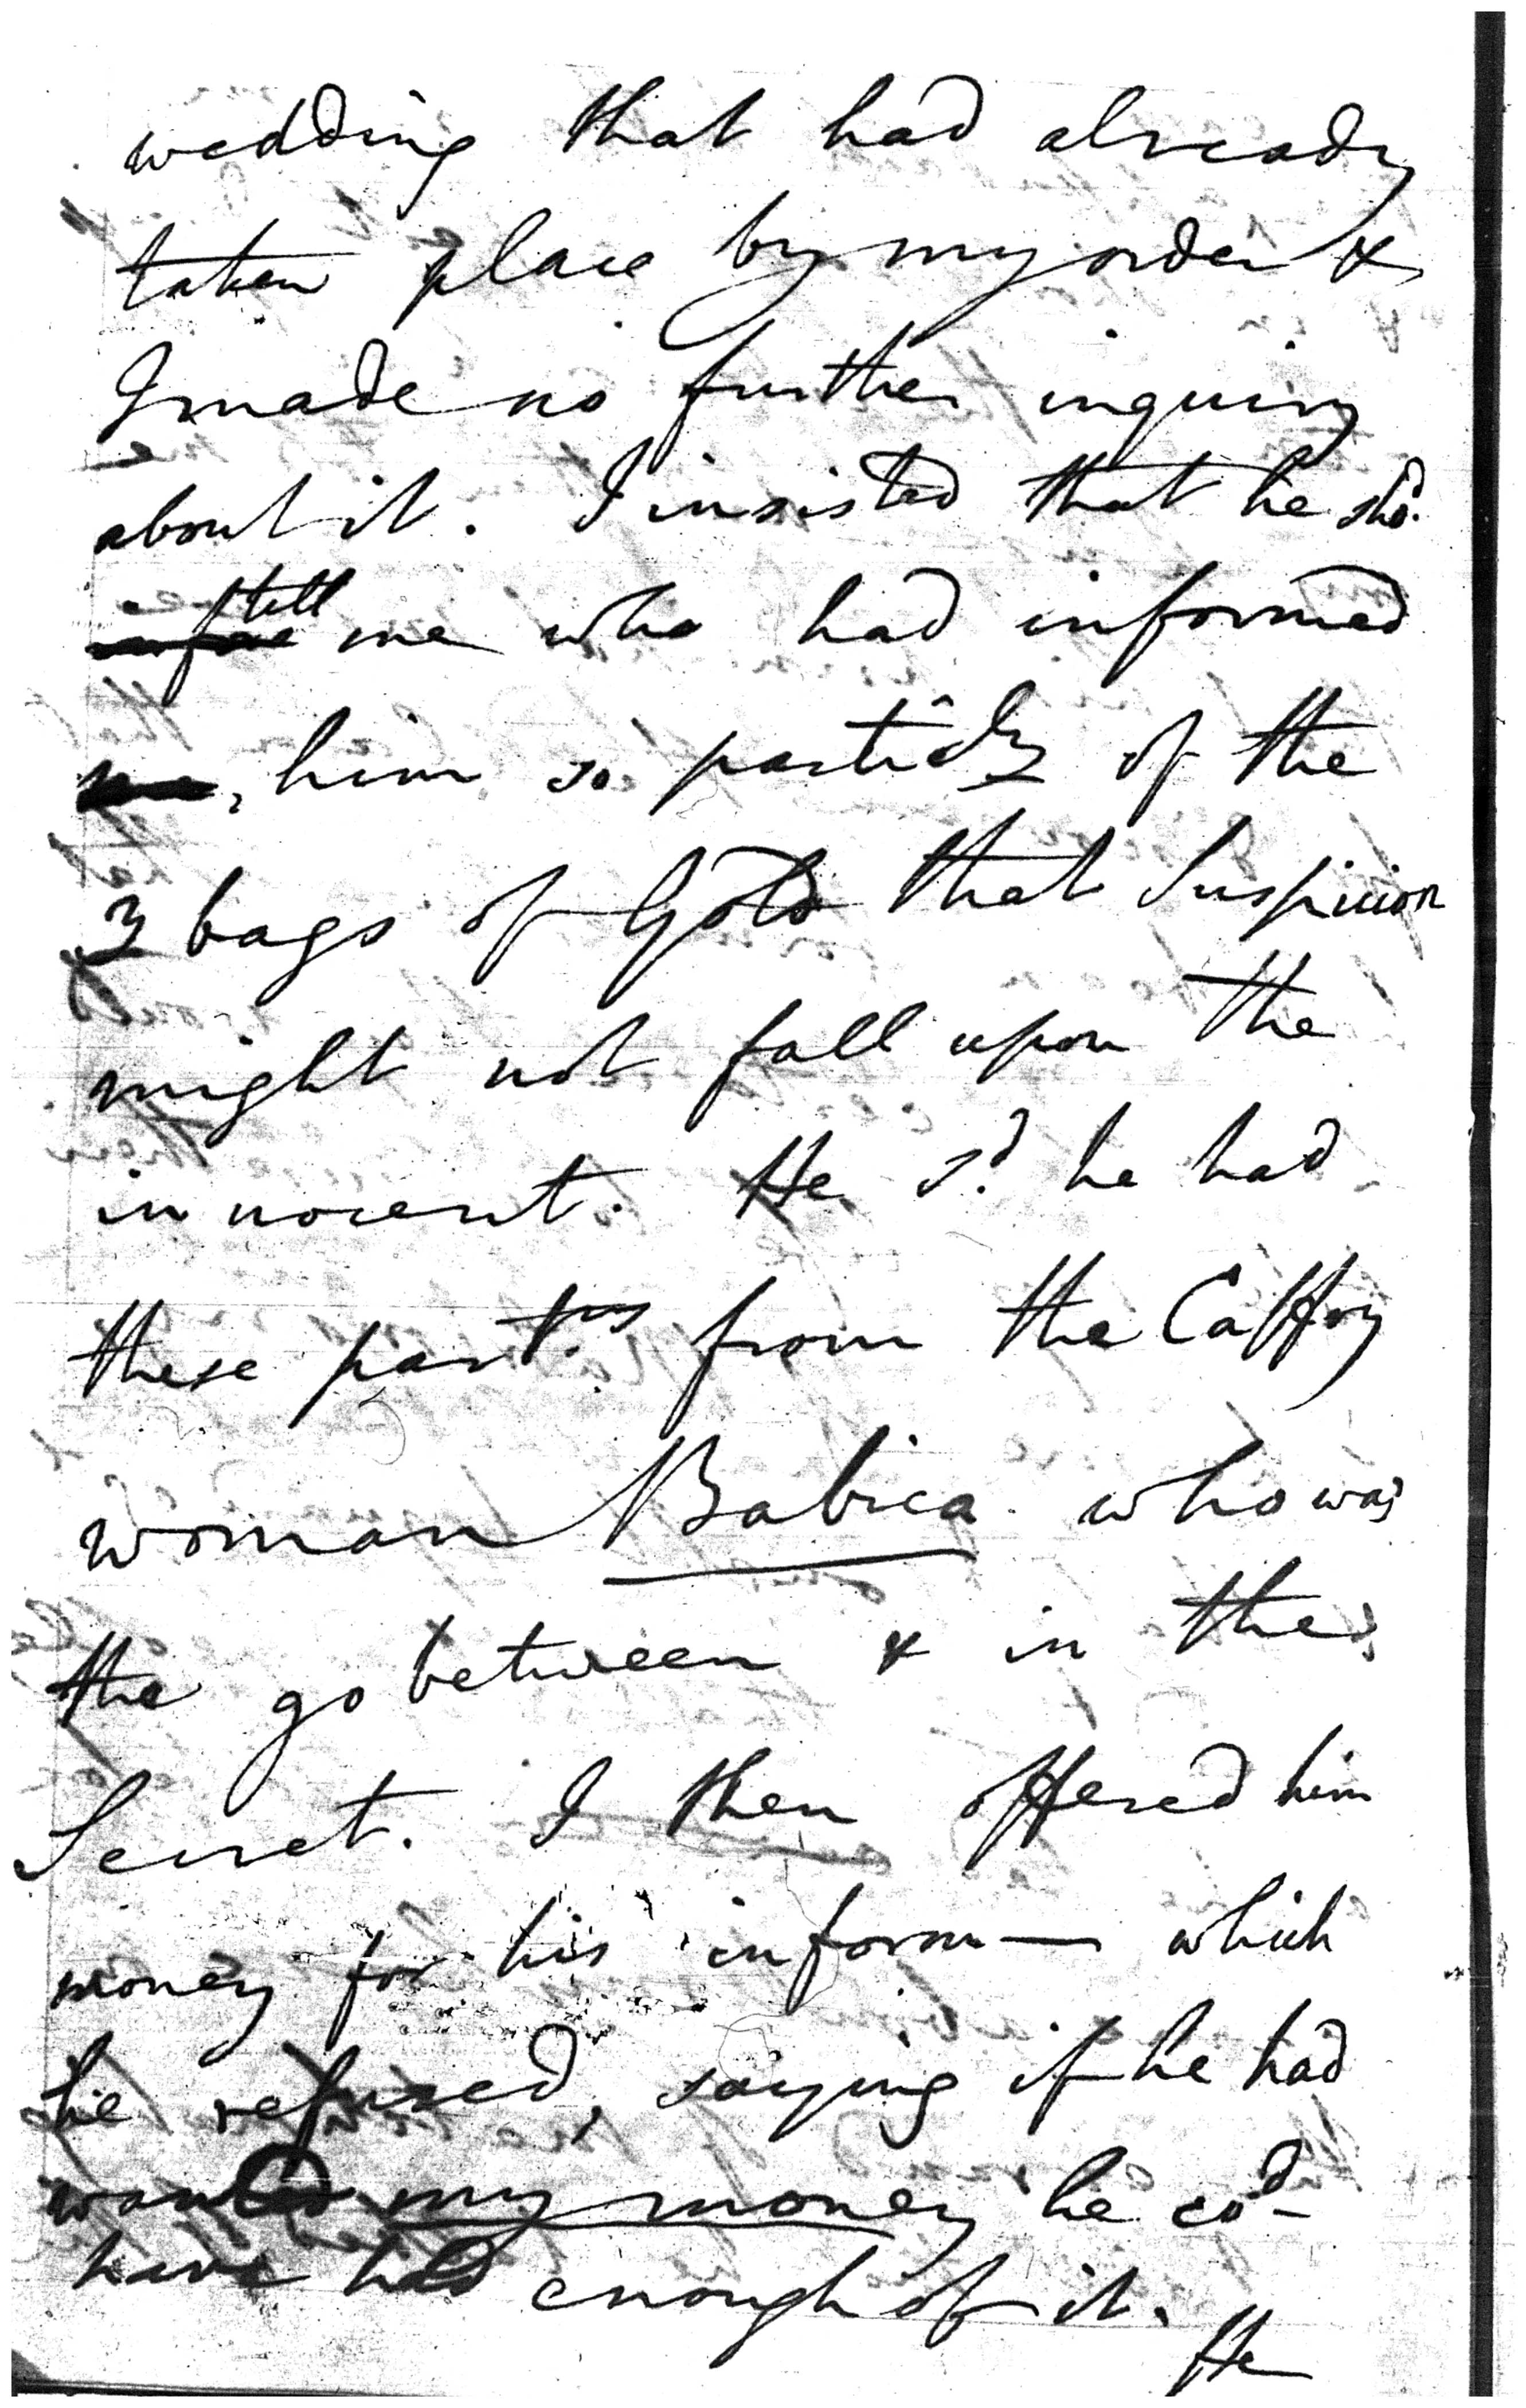 wedding that had already
taken place by my order &
I made no further inquiry
about it. I insisted that he shd.
tell me who had informed
him so particly of the
3 bags of Gold that Suspicion
might not fall upon the
innocent. He sd. he had
these partrs from the Caffry
woman Babica who was
the go between & in the
Secret. I then offered him
money for his inform— which
he refused, saying if he had
wanted my money he cod-
have had enough of it.
He